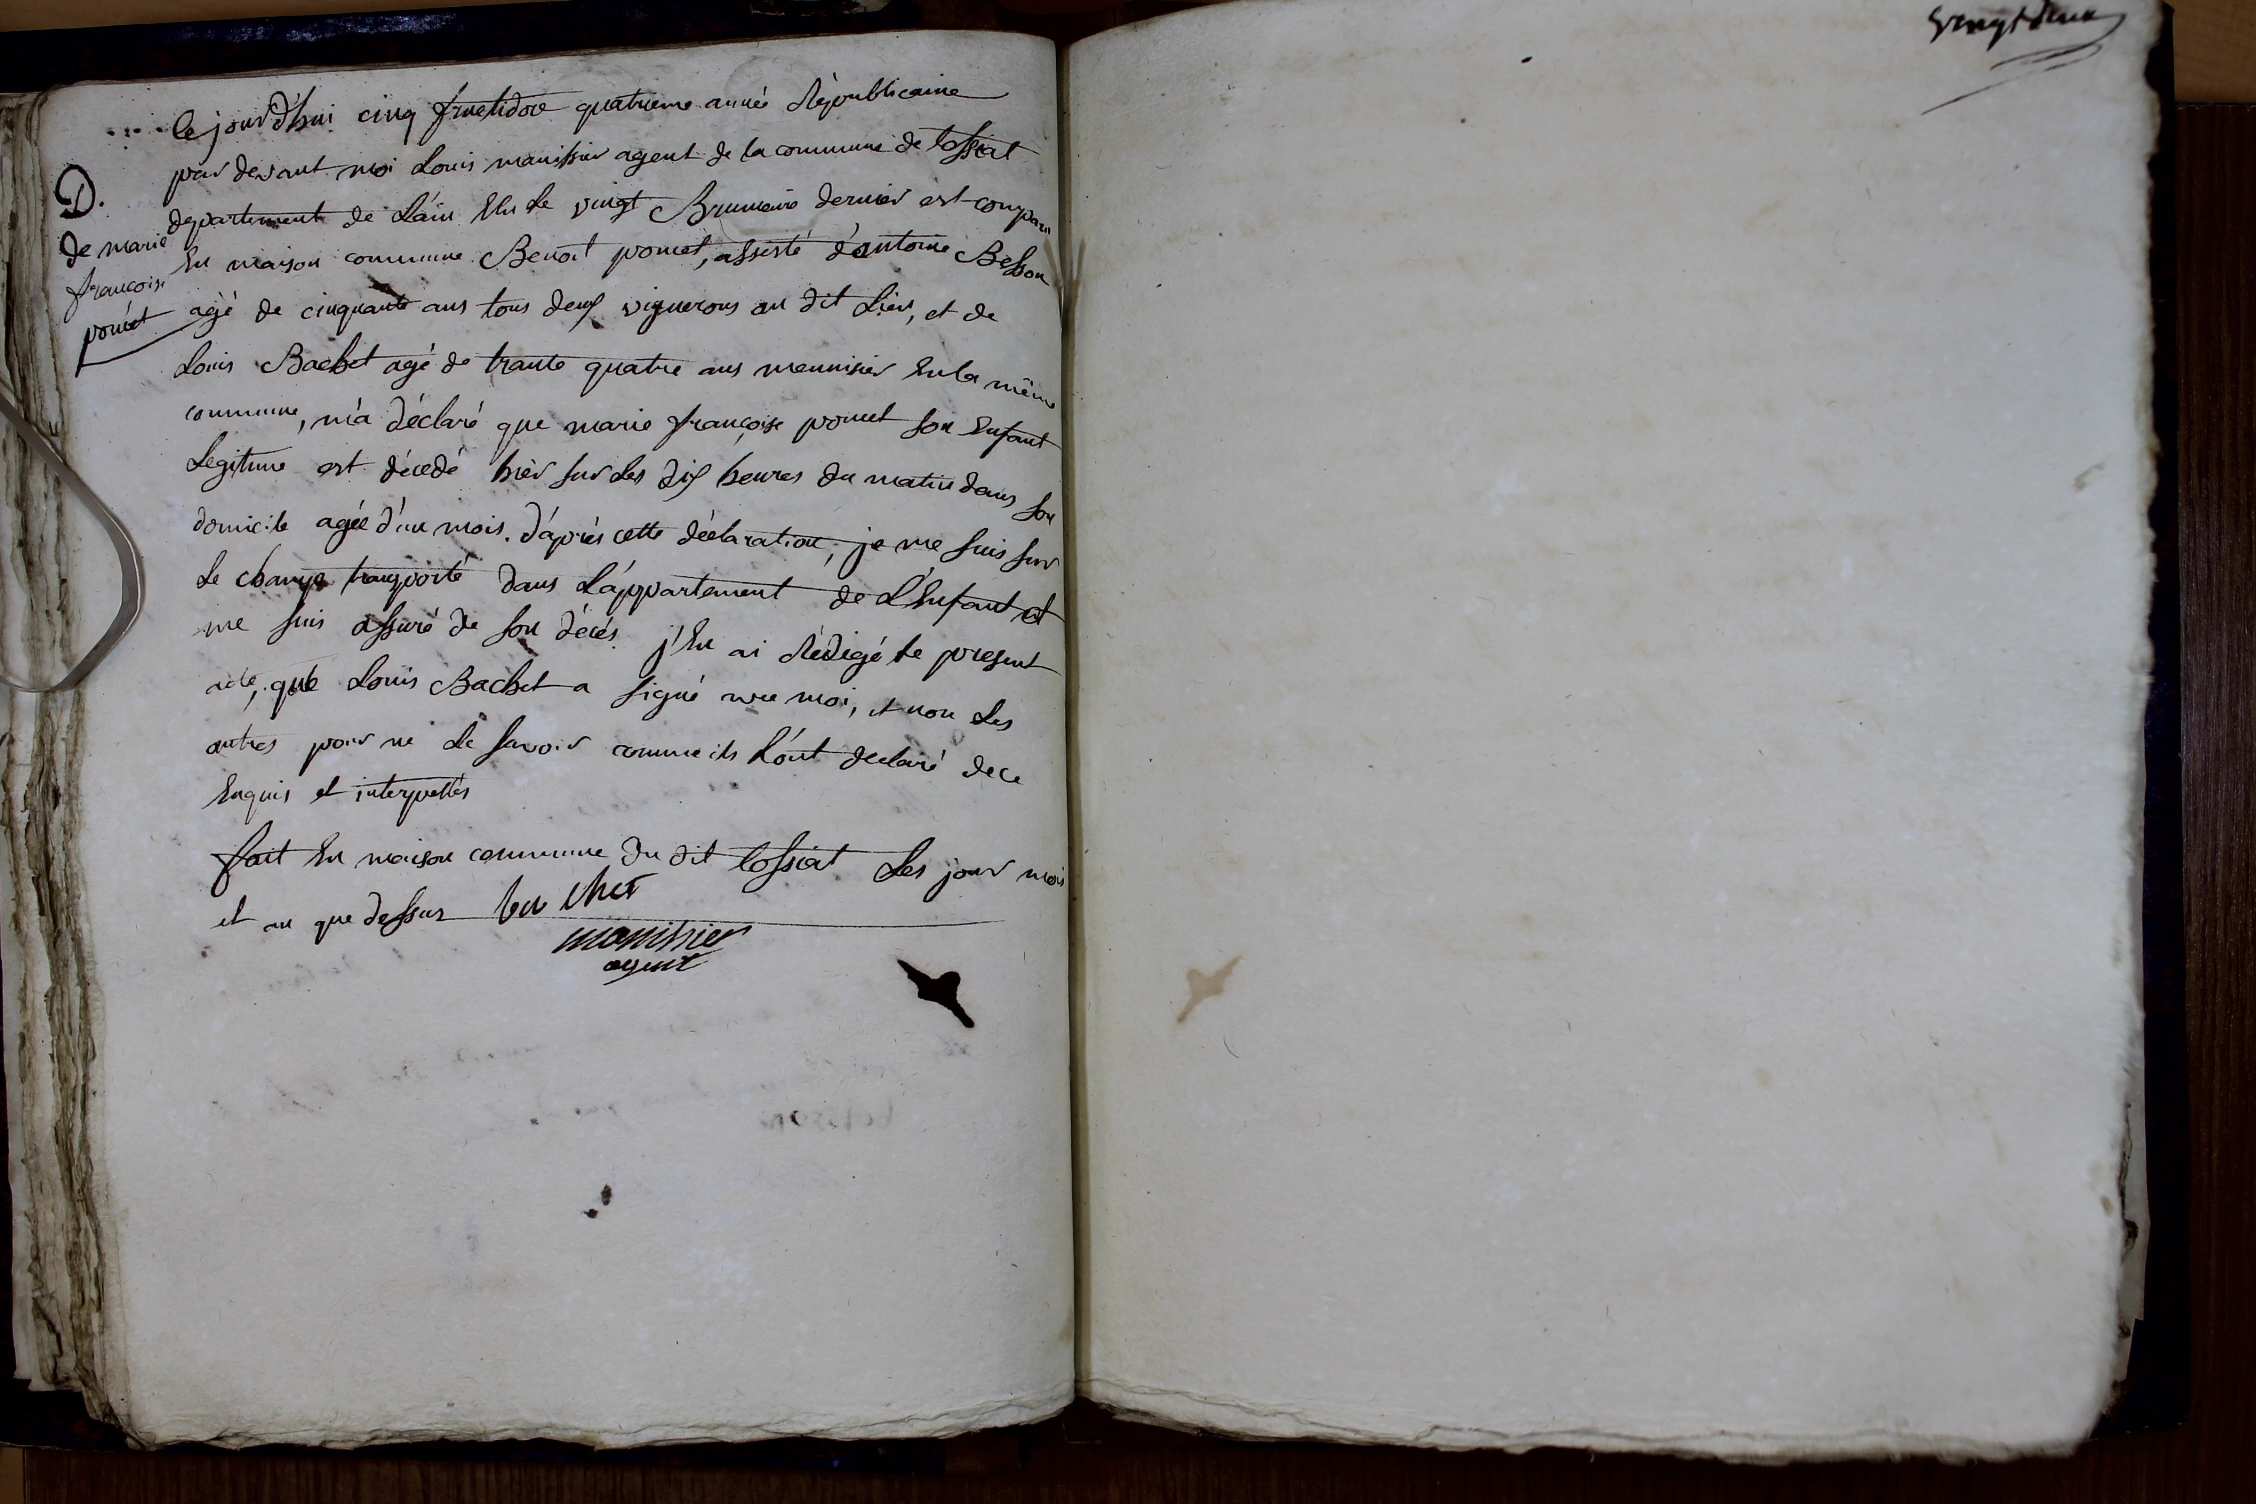 vingt deux
Ce jourd'hui cinq fructidor quatrieme année Républicaine
par devant moi Louis manissier agent de la commune de tossiat
D.
département de L'ain Elu Le vingt Brumaire dernier est comparu
de marie
En maison commune Benoit poncet, assisté d'antoine Besson
françoise
agé de cinquante ans tous deux vignerons au dit Lieu, et de
poncet
Louis Bachet agé de trante quatre ans menuisier En la même
commune, m'a déclaré que marie françoise poncet son Enfant
Legitime est décedé hièr sur Les dix heures du matin dans son
domicile agée d'un mois. d'après cette déclaration, je me suis sur
Le champ transporté dans L'appartement de L'Enfant et
me suis assuré de son décés. j'En ai Rédigé Le present
acte, que Louis Bachet a signé avec moi, et non Les
autres pour ne Le savoir comme ils L'ont declaré de ce
Enquis et interpellés
fait En maison commune du dit tossiat Les jour mois
et an que dessus bachet
manissier
agent